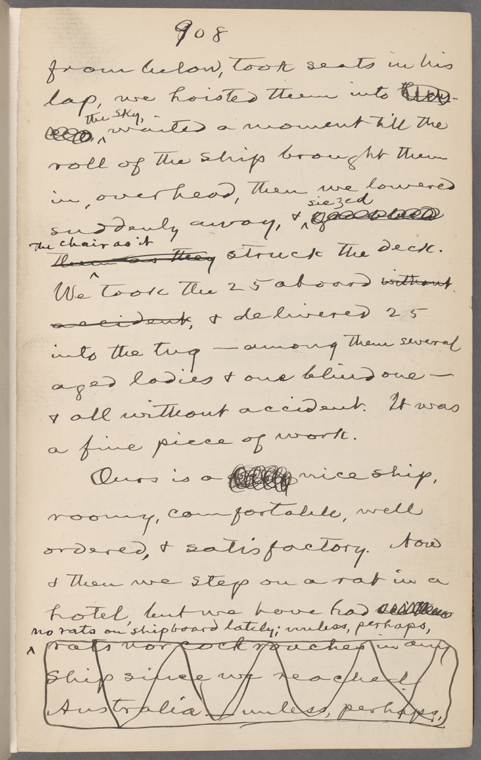 908
from below, took seats in his
lap, we hoisted them into
the sky,
waited a moment till the
roll of the ship brought them
in, overhead, then we lowered
siezed
suddenly away, &
the chair as it
them as they struck the deck.
We took the 25 aboard without
accident, & delivered 25
into the tug — among them several
aged ladies & one blind one —
& all without accident. It was
a fine piece of work.
Ours is a nice ship,
roomy, comfortable, well
ordered, & satisfactory. Now
& then we step on a rat in a
hotel, but we have had
no rats on shipboard lately; unless, perhaps,
rats nor cockroaches in any
ship since we reached
Australia — unless, perhaps,